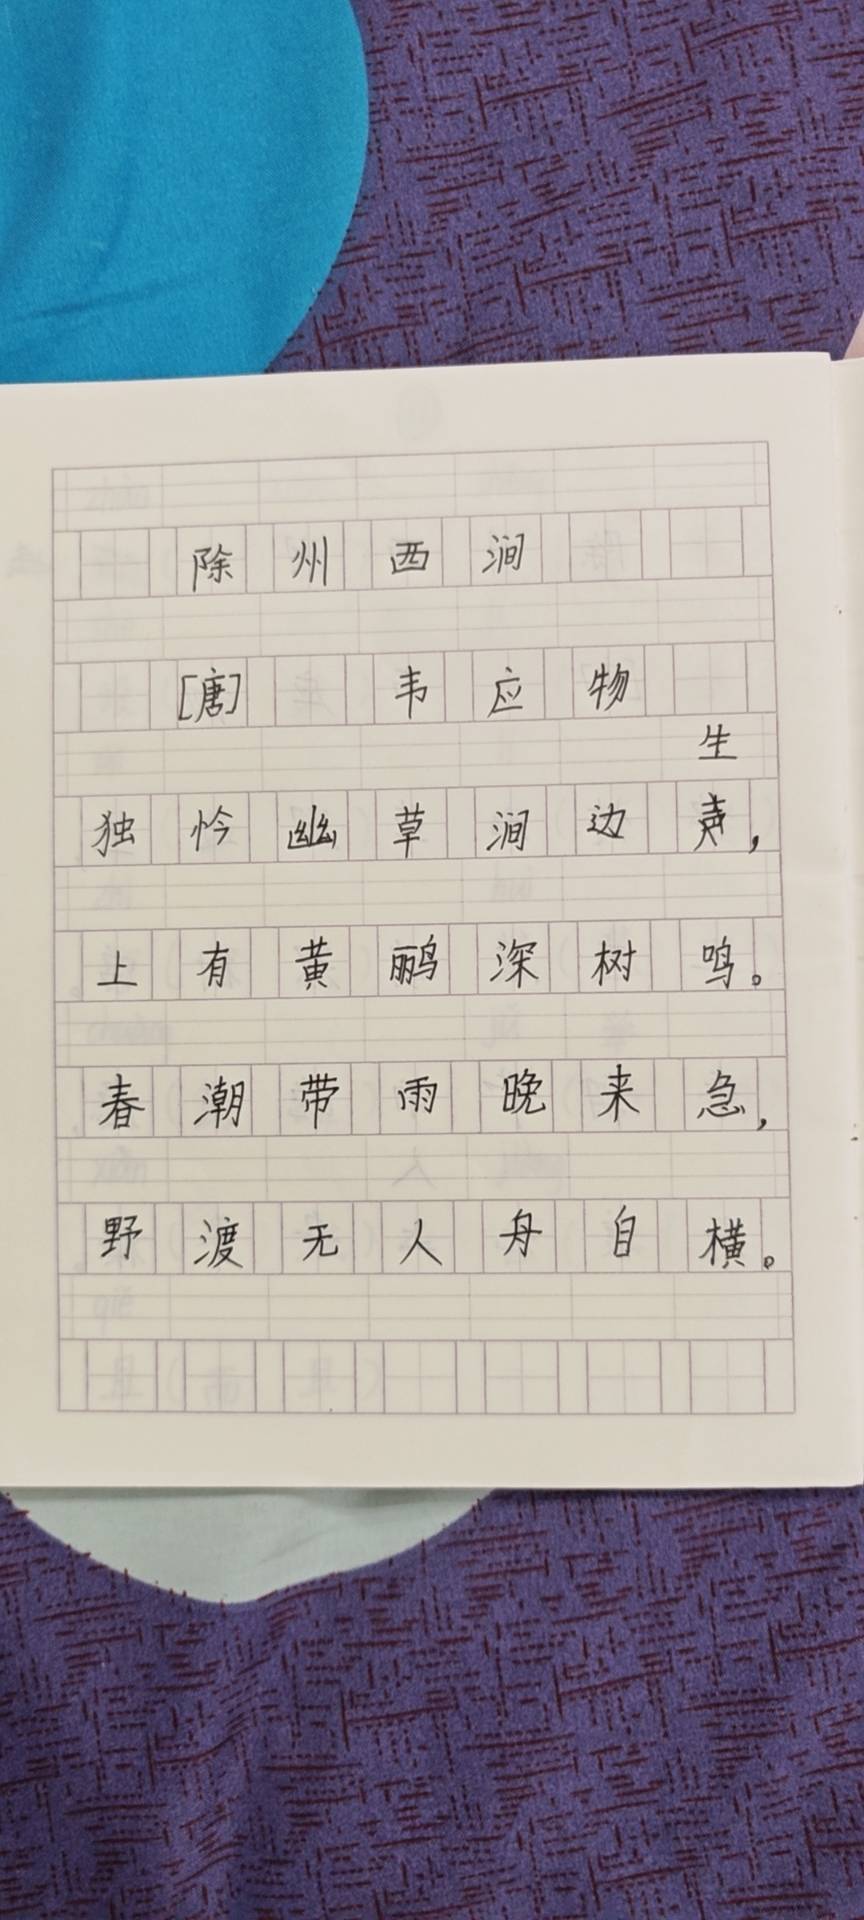 除州西涧
[唐] 韦应物
生
独忴幽草涧边声，
上有黄鹂深树鸣。
春潮带雨晚来急，
野渡无人舟自横。